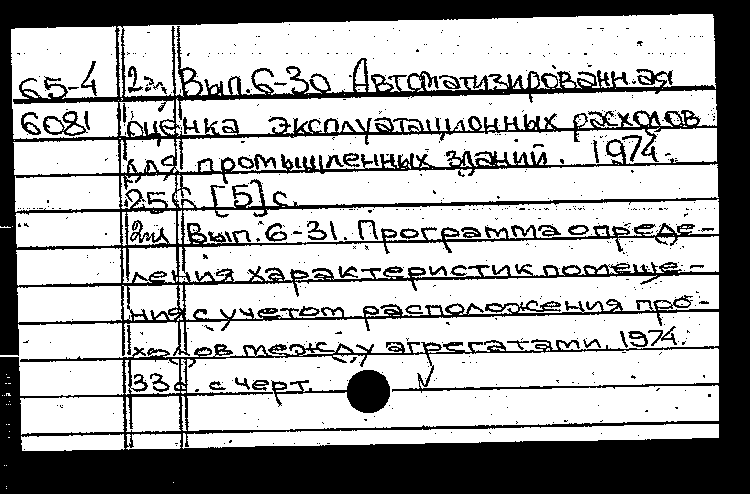 65-4 2эк Вып.6-30 Автоматизированная
6081 оценка эксплуатационных расходов
для промышленных зданий. 1974.
256. [5] с.
2эк Вып.6-31. Программа опреде-
ления характеристик помеще-
ния с учетом расположения про-
ходов между агрегатами. 1974.
33с. с черт.